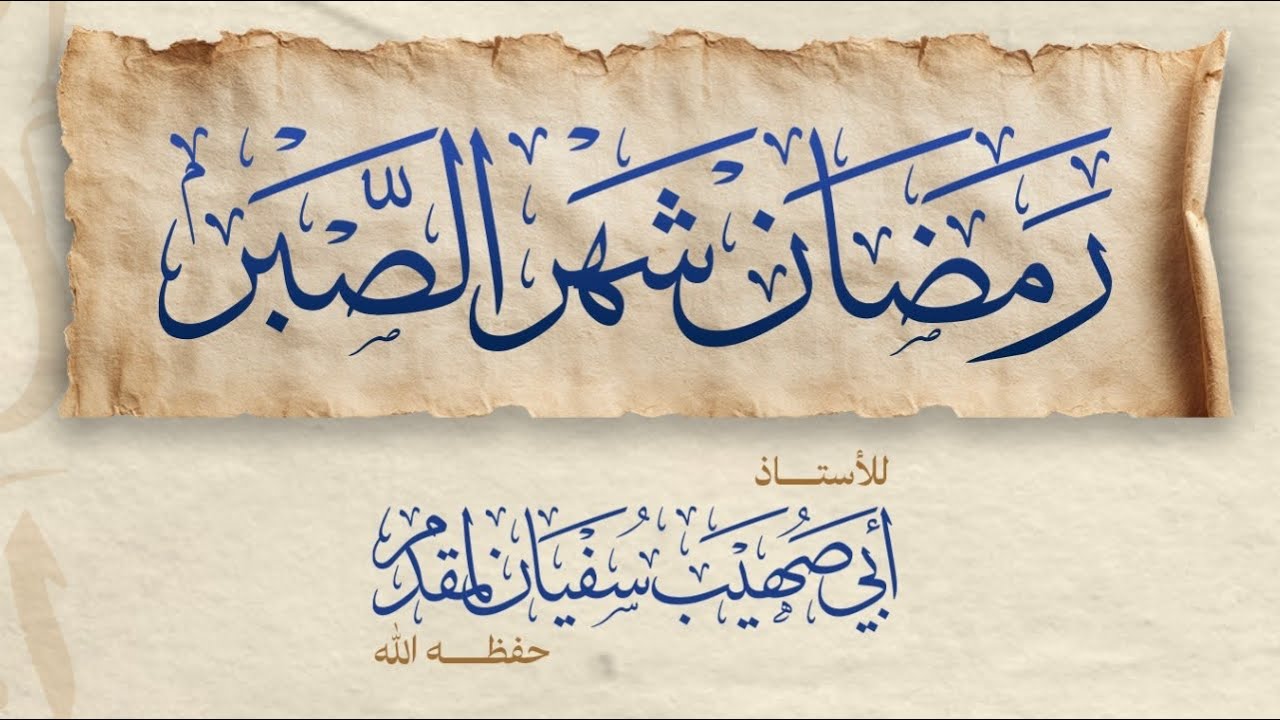 رَمَضَان شَهْر الصَّبْر
للأستاذ
أبي صُهَيْب سُفْيَان المقدم
حفظه الله